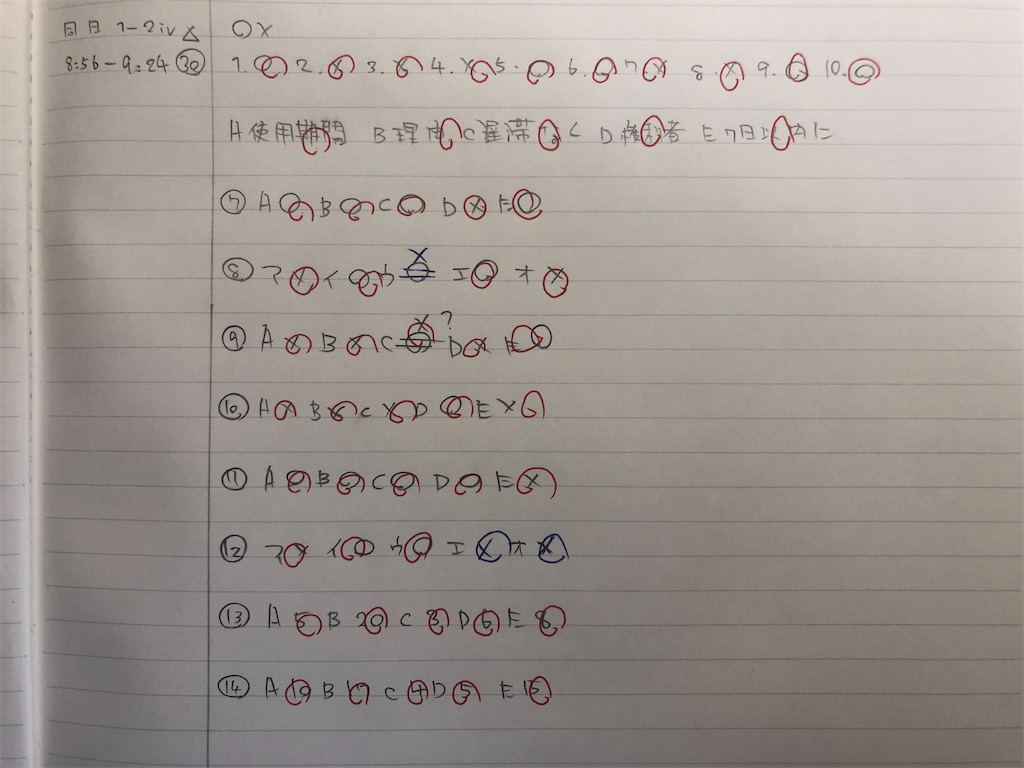 同日 1-2iv △ ○×
8:56-9:24 ㉚ 1.○ 2.× 3.× 4.× 5.○ 6.○ 7× 8.× 9.○ 10.○
A 使用期間 B 理由 C 遅滞なく D 権利者 E 7日以内に
⑦ A ○ B ○ C ○ D × E ○
⑧ ア × イ ○ ウ × エ ○ オ ×
⑨ A × B × C × ? D × E ○
⑩ A × B × C × D ○ E ×
⑪ A ○ B ○ C ○ D ○ E ×
⑫ ア × イ ○ ウ ○ エ × オ ×
⑬ A B 20 C 3 D E 8
⑭ A 19 B 17 C D 5 E